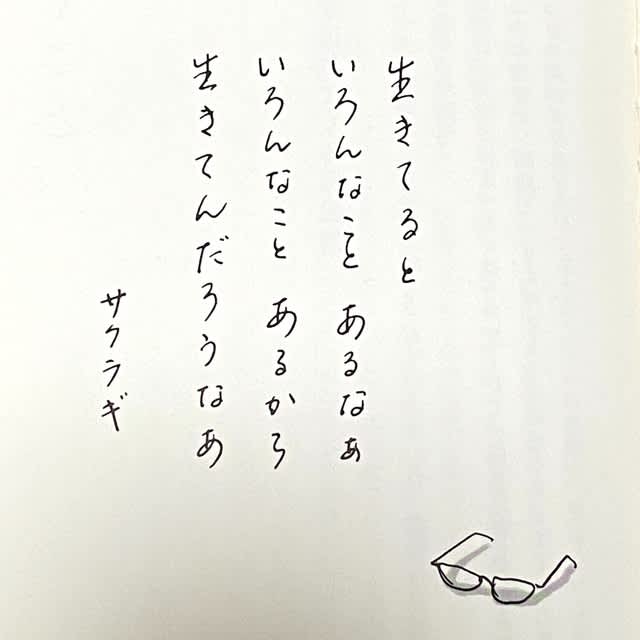 生きてると
いろんなこと あるなぁ
いろんなこと あるから
生きてんだろうなあ
サクラギ